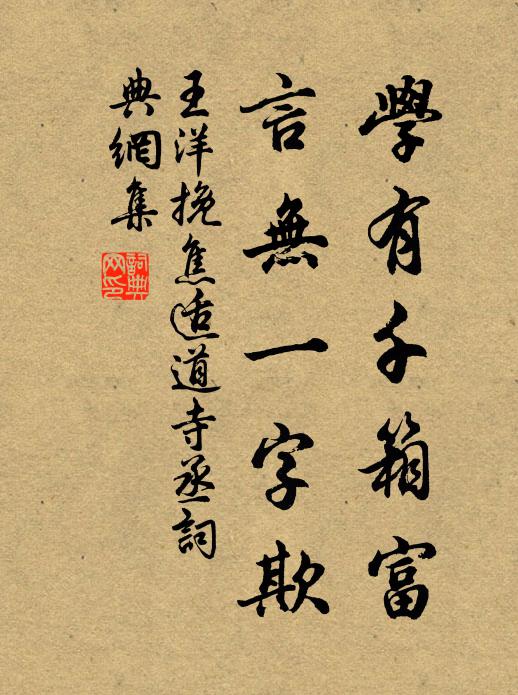 學有千箱富
言無一字欺
王洋挽焦适道寺丞詞
典網集
詞典网印